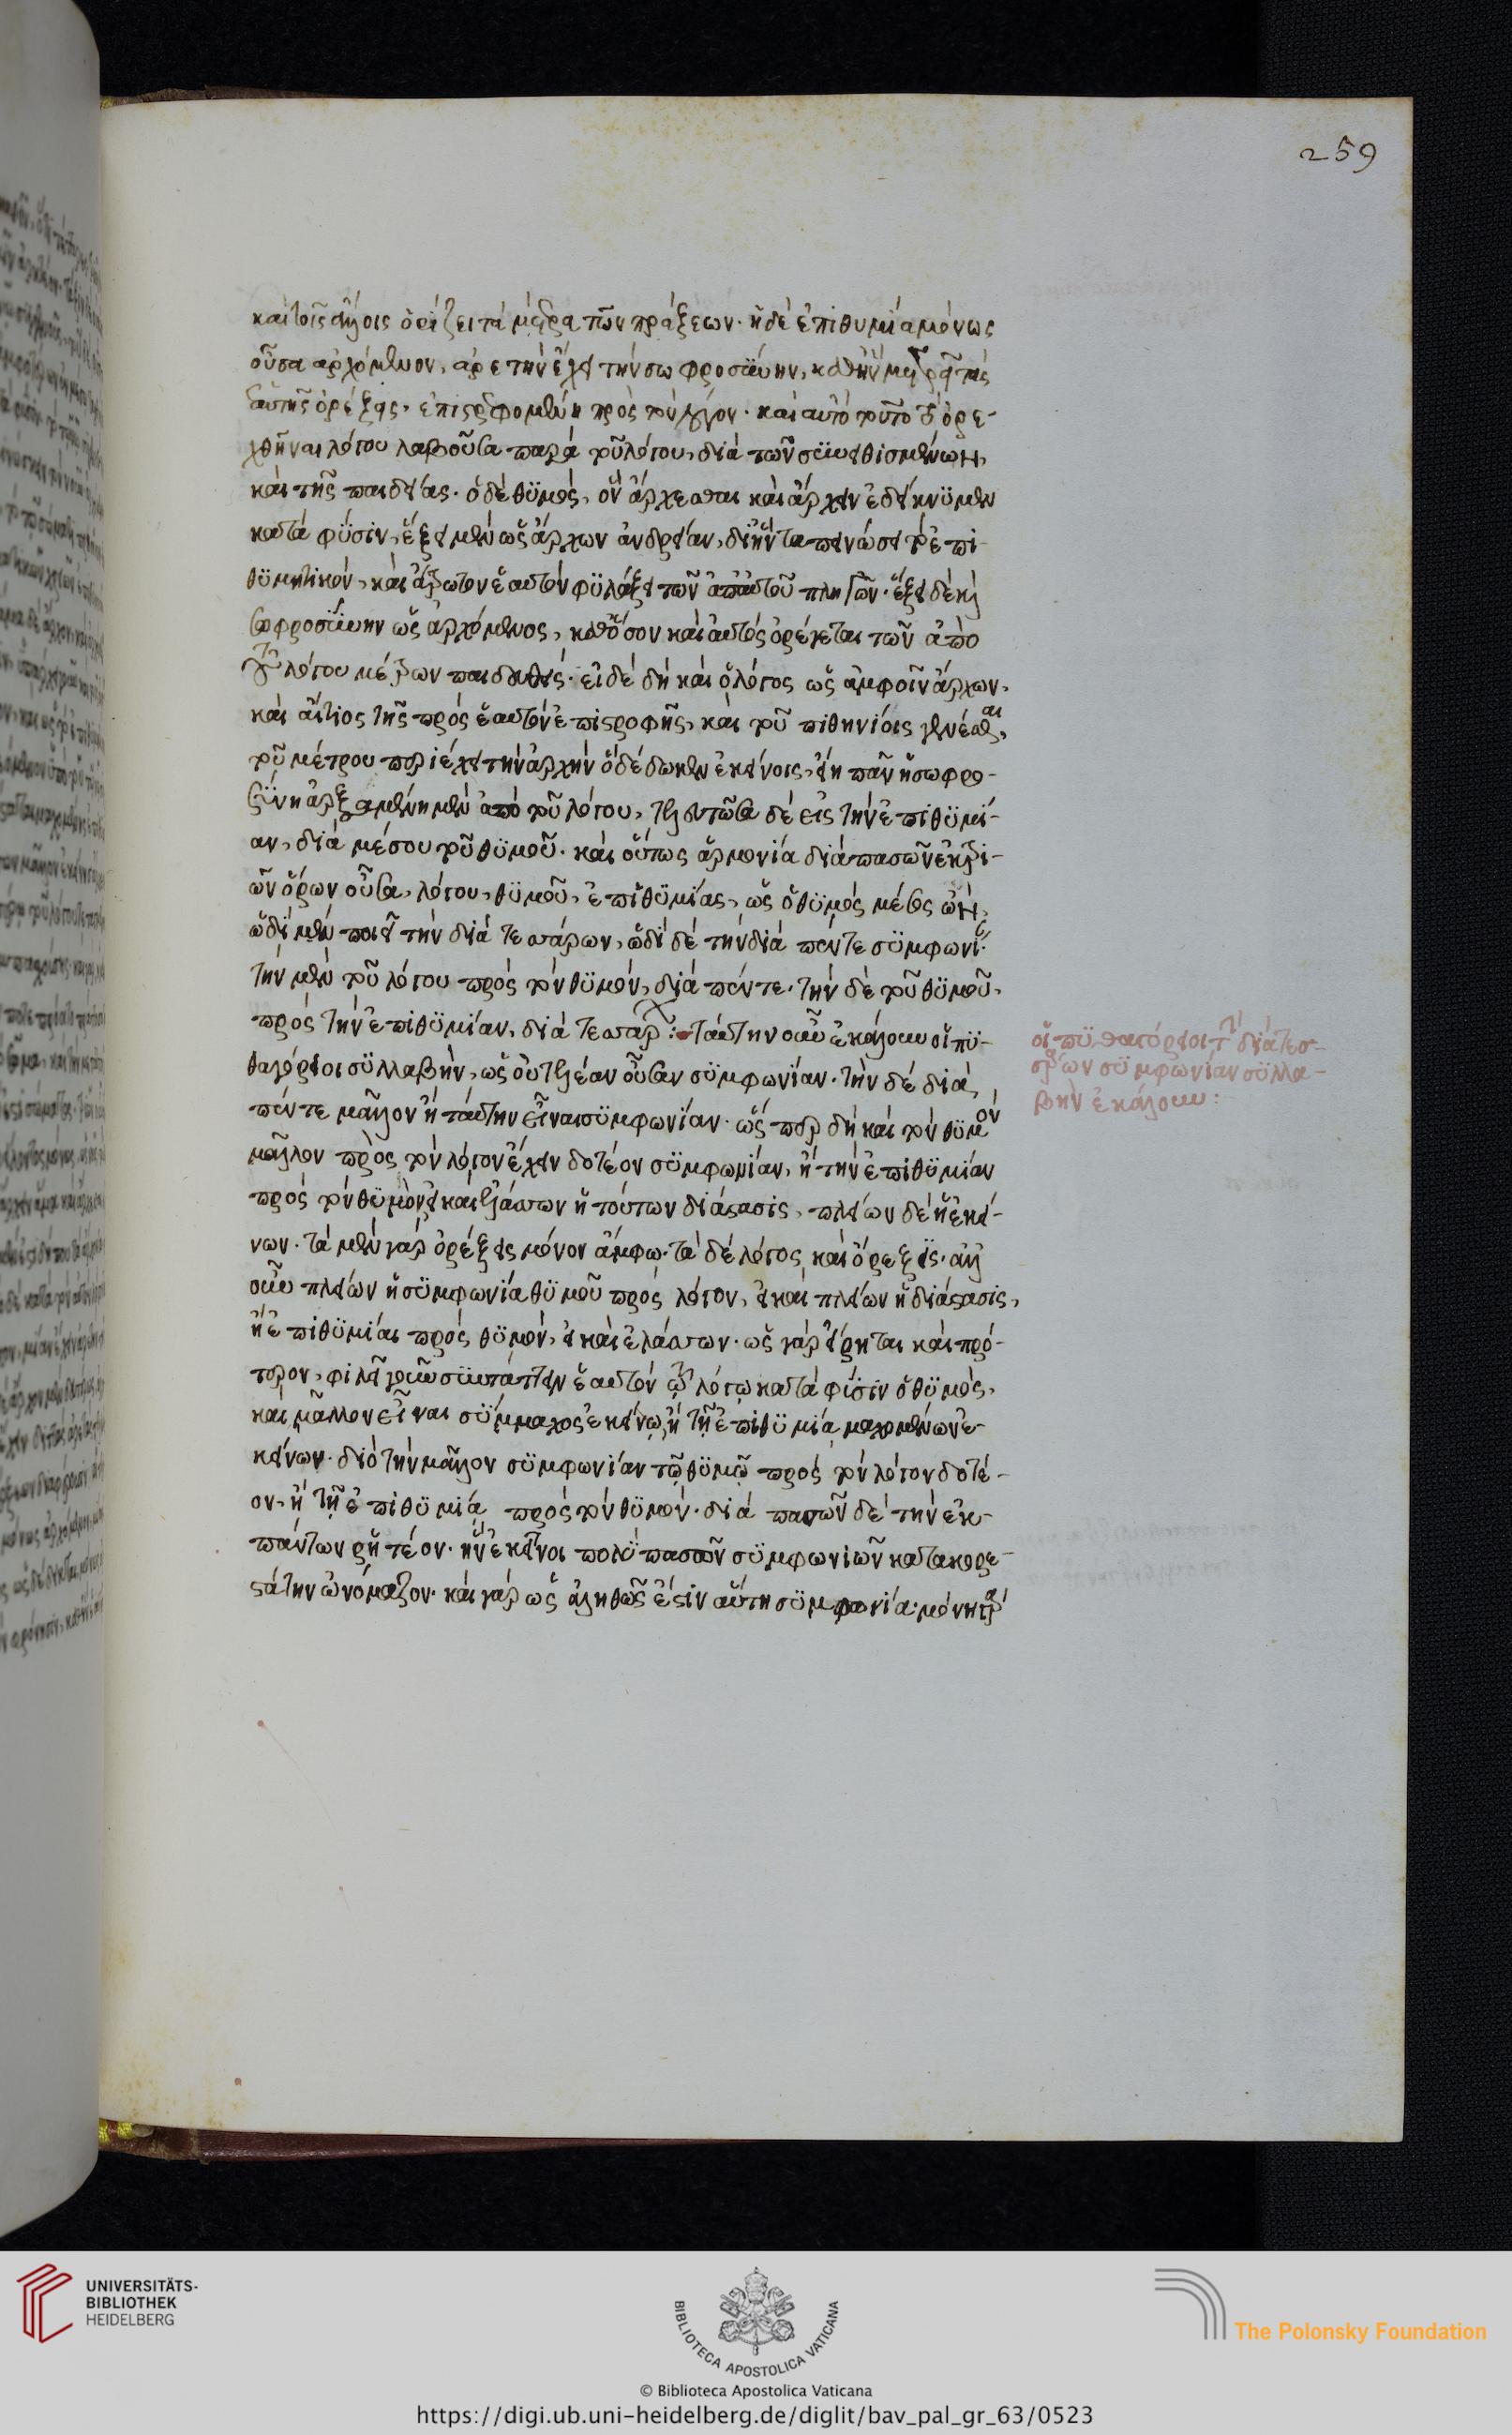 259
καὶ τοῖς ἄλλοις ὁρίζει τὰ μέτρα τῶν πράξεων. ἡ δὲ ἐπιθυμία μόνως
οὖσα ἀρχόμενον, ἀρετὴν ἔχει τὴν σωφροσύνην, καθ' ἣν μετρεῖ τὰς
ἑαυτῆς ὀρέξεις, ἐπιστρεφομένη πρὸς τὸν λόγον. καὶ αὐτὸ τοῦτο τὸ ὀρε-
χθῆναι λόγου λαβοῦσα παρὰ τοῦ λόγου, διὰ τῶν συνεθισμένων,
καὶ τῆς παιδείας. ὁ δὲ θυμὸς, ὃν ἄρχεσθαι καὶ ἄρχειν ἐδείκνυμεν
κατὰ φύσιν, ἕξει μὲν ὡς ἄρχων ἀνδρείαν, δι' ἣν ταπεινώσει τὸ ἐπι-
θυμητικὸν, καὶ ἄτρωτον ἑαυτὸν φυλάξει τῶν ἀπ' αὐτοῦ πληγῶν. ἕξει δὲ καὶ
σωφροσύνην ὡς ἀρχόμενος, καθ' ὅσον καὶ αὐτὸς ὀρέγεται τῶν ἀπὸ
τοῦ λόγου μέτρων παιδευθείς. εἰ δὲ δὴ καὶ ὁ λόγος ὡς ἀμφοῖν ἄρχων,
καὶ αἴτιος τῆς πρὸς ἑαυτὸν ἐπιστροφῆς, καὶ τοῦ πιθηνίοις γενέσθαι,
τοῦ μέτρου περιέχει τὴν ἀρχὴν ὃ δέδωκεν ἐκείνοις, εἴη πᾶν ἡ σωφρο-
σύνη ἀρξαμένη μὲν ἀπὸ τοῦ λόγου, τελευτῶσα δὲ εἰς τὴν ἐπιθυμί-
αν, διὰ μέσου τοῦ θυμοῦ. καὶ οὕτως ἁρμονία διὰ πασῶν ἐκ τρι-
ῶν ὅρων οὖσα, λόγου, θυμοῦ, ἐπιθυμίας, ὡς ὁ θυμὸς μέσος ὢν,
ὡδὶ μὲν ποιεῖ τὴν διὰ τεσσάρων, ὡδὶ δὲ τὴν διὰ πέντε συμφωνίαν.
τὴν μὲν τοῦ λόγου πρὸς τὸν θυμὸν, διὰ πέντε. τὴν δὲ τοῦ θυμοῦ,
πρὸς τὴν ἐπιθυμίαν, διὰ τεσσάρων: ταύτην οὖν ἐκάλουν οἱ πυ-
θαγόρειοι συλλαβὴν, ὡς οὐ τελέαν οὖσαν συμφωνίαν. τὴν δὲ διὰ
πέντε μᾶλλον ἢ ταύτην εἶναι συμφωνίαν. ὥσπερ δὴ καὶ τὸν θυμὸν
μᾶλλον πρὸς τὸν λόγον ἔχειν δοτέον συμφωνίαν, ἢ τὴν ἐπιθυμίαν
πρὸς τὸν θυμὸν, εἰ καὶ ἐλάσσων ἡ τούτων διάστασις, πλείων δὲ ἡ ἐκεί-
νων. τὰ μὲν γὰρ ὀρέξεις μόνον ἄμφω. τὰ δὲ λόγος καὶ ὄρεξις. ἀλλ'
οὖν πλείων ἡ συμφωνία θυμοῦ πρὸς λόγον, εἰ καὶ πλείων ἡ διάστασις,
ἢ ἐπιθυμίαι πρὸς θυμὸν, εἰ καὶ ἐλάσσων. ὡς γὰρ εἴρηται καὶ πρό-
τερον, φιλεῖ γοῦν συντάττειν ἑαυτὸν τῷ λόγῳ κατὰ φύσιν ὁ θυμὸς,
καὶ μᾶλλον εἶναι σύμμαχος ἐκείνῳ, ἢ τῇ ἐπιθυμίᾳ μαχομένων ἐ-
κείνων. διὸ τὴν μᾶλλον συμφωνίαν τῷ θυμῷ πρὸς τὸν λόγον δοτέ-
ον, ἢ τῇ ἐπιθυμίᾳ πρὸς τὸν θυμόν. διὰ πασῶν δὲ τὴν ἐκ
πάντων ῥητέον. ἣν ἐκεῖνοι πολὺ πασῶν συμφωνιῶν κατακορε-
στάτην ὠνόμαζον. καὶ γὰρ ὡς ἀληθῶς ἐστὶν αὕτη συμφωνία. μόνη γὰρ
οἱ πυθαγόρειοι τὴν διὰ τεσ-
σάρων συμφωνίαν συλλα-
βὴν ἐκάλουν:
UNIVERSITÄTS-
BIBLIOTHEK
HEIDELBERG
BIBLIOTECA APOSTOLICA VATICANA
The Polonsky Foundation
© Biblioteca Apostolica Vaticana
https://digi.ub.uni-heidelberg.de/diglit/bav_pal_gr_63/0523